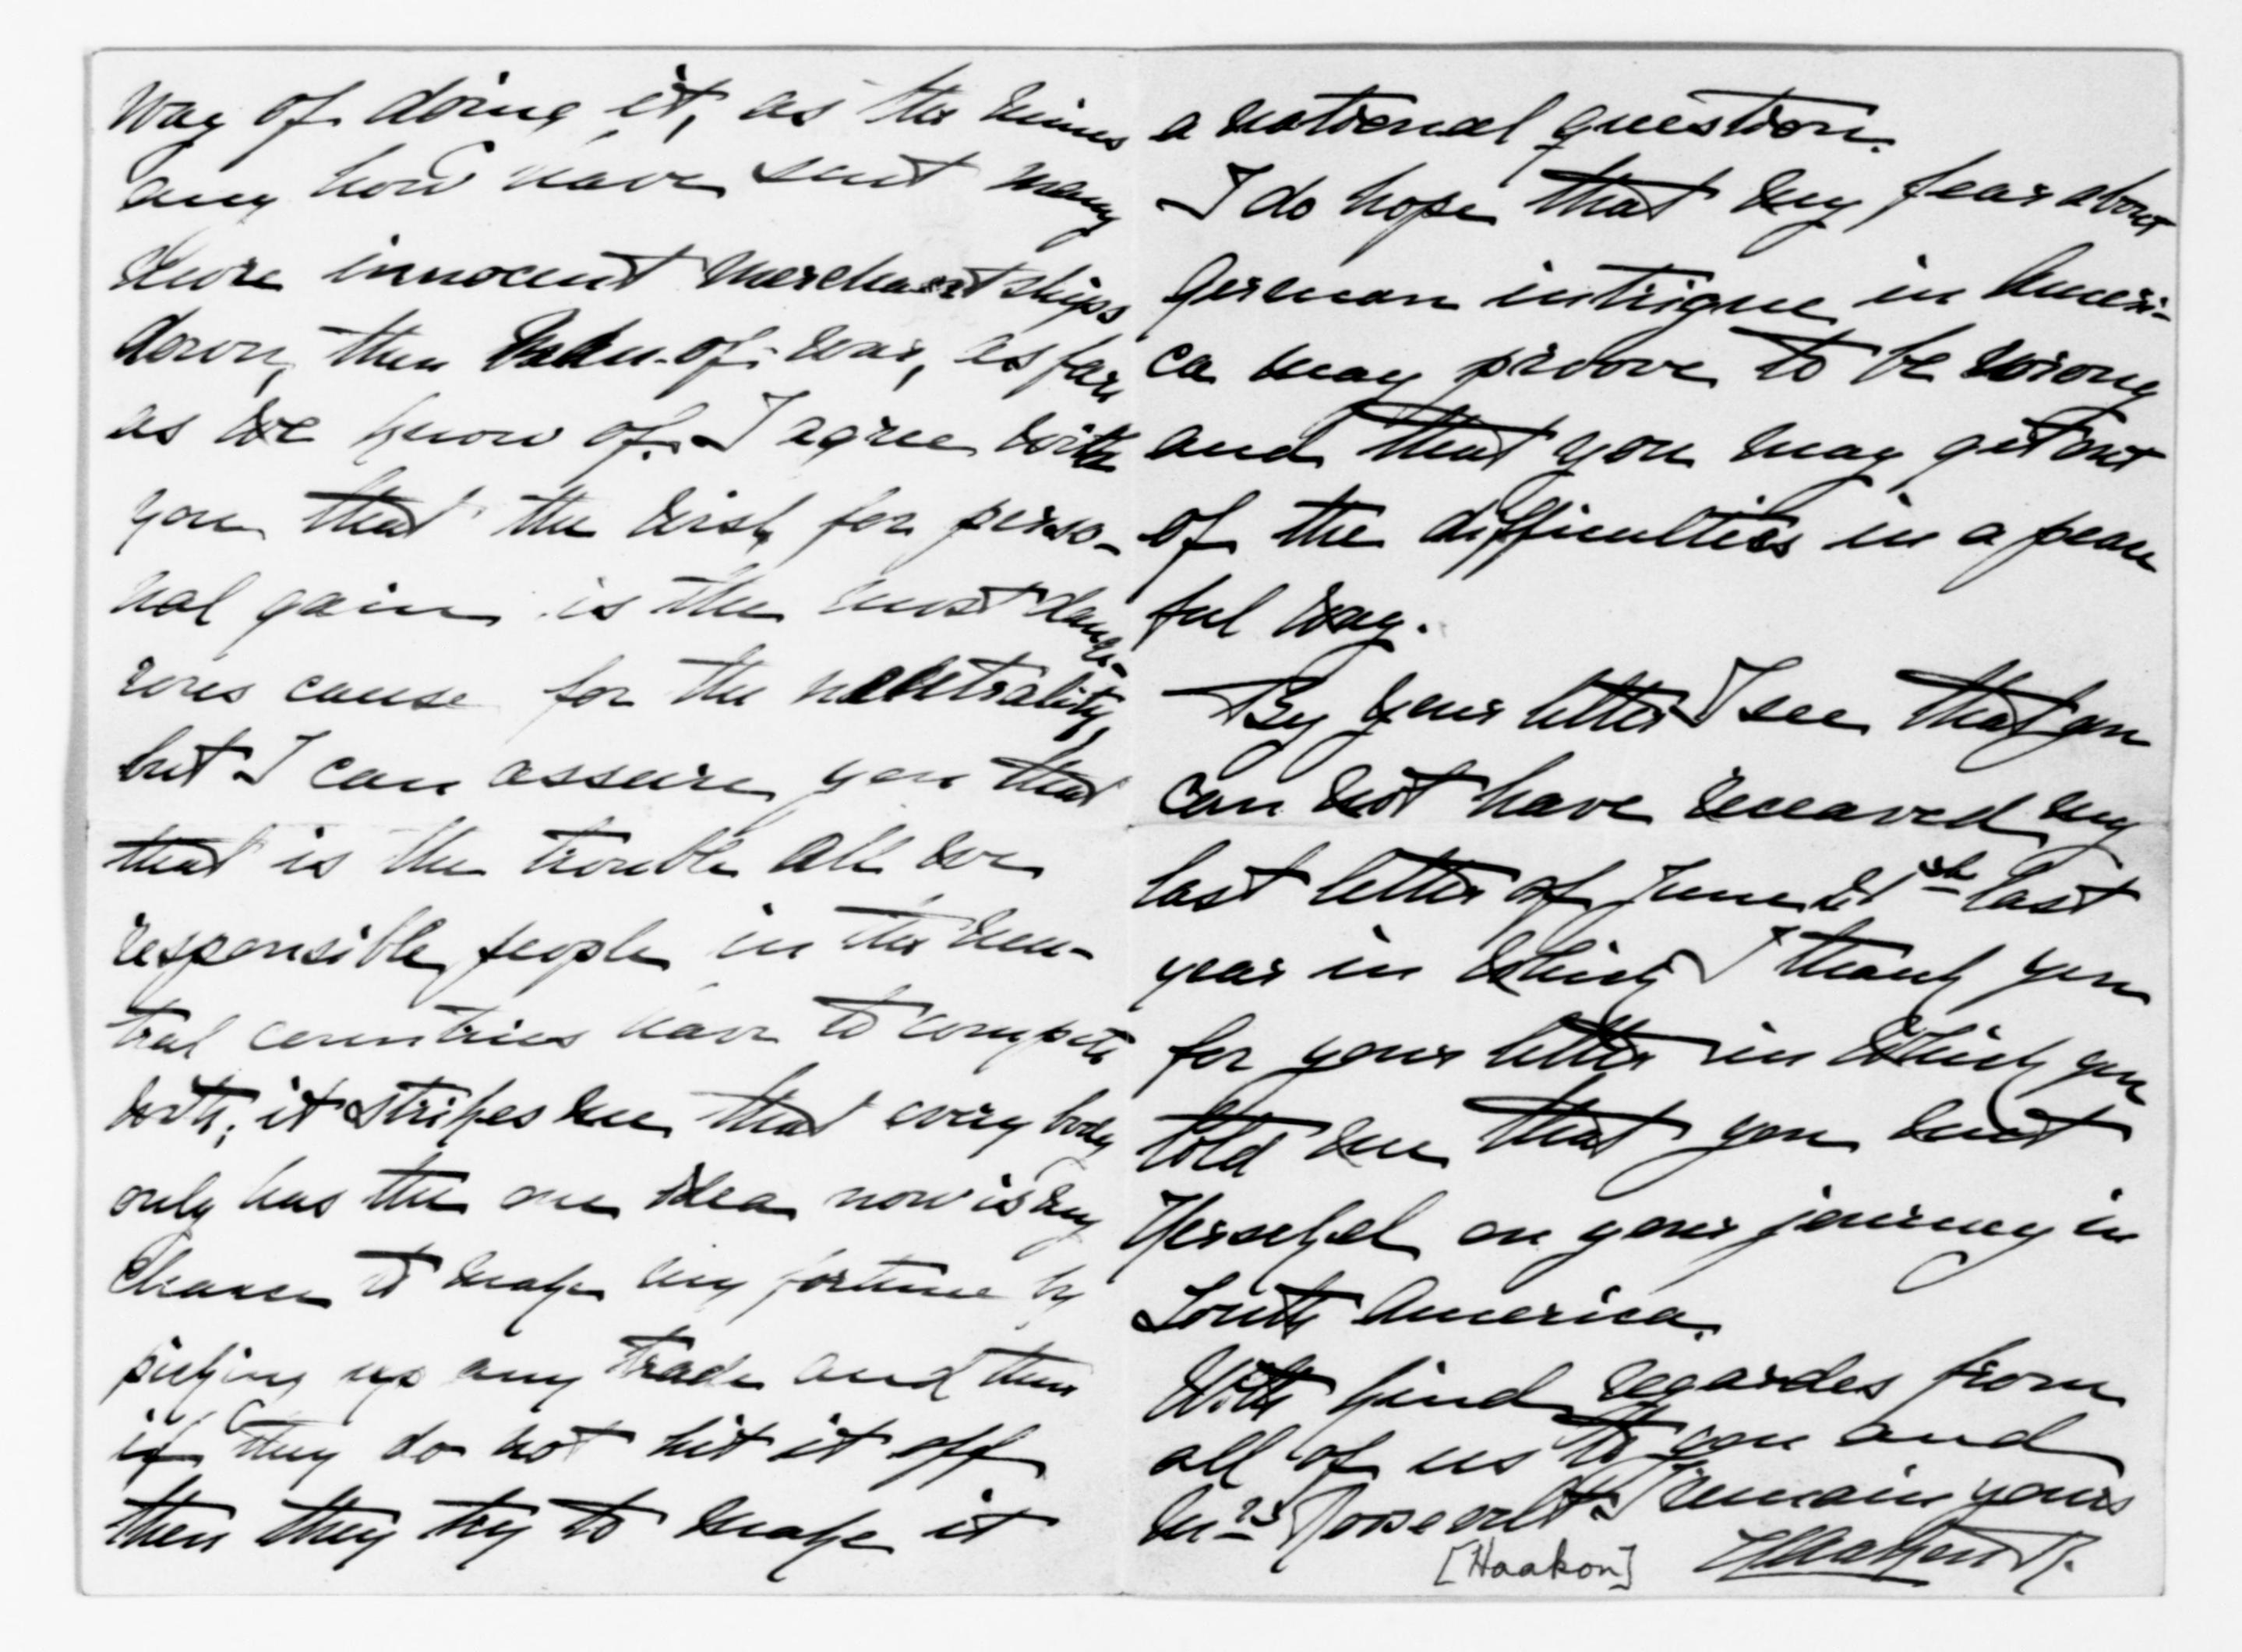 way of doing it, as the mines
any how have sent many
more innocent merchant ships
down, then Man-of-war, as far
as we know of. I agree with
you that the wish for perso-
nal gain is the most dange-
rous cause for the neutrality,
but I can assure you that
that is the trouble all we
responsible people in the neu-
tral countries have to compete
with; it strikes me that every body
only has the one idea now is my
chance to make my fortune by
picking up any trade and then
if they do not hit it off
then they try to make it
a national question.
I do hope that my fear about
German intrigue in Ameri-
ca may proove to be wrong
and that you may get out
of the difficulties in a peace
ful way.
By your letter I see that you
can not have receaved my
last letter of June 21st last
year in which I thank you
for your letter in which you
told me that you met
on your journey in
South America.
With kind regardes from
all of us to you and
Mrs Roosevelt I remain yours
Haakon R.
[Haakon]